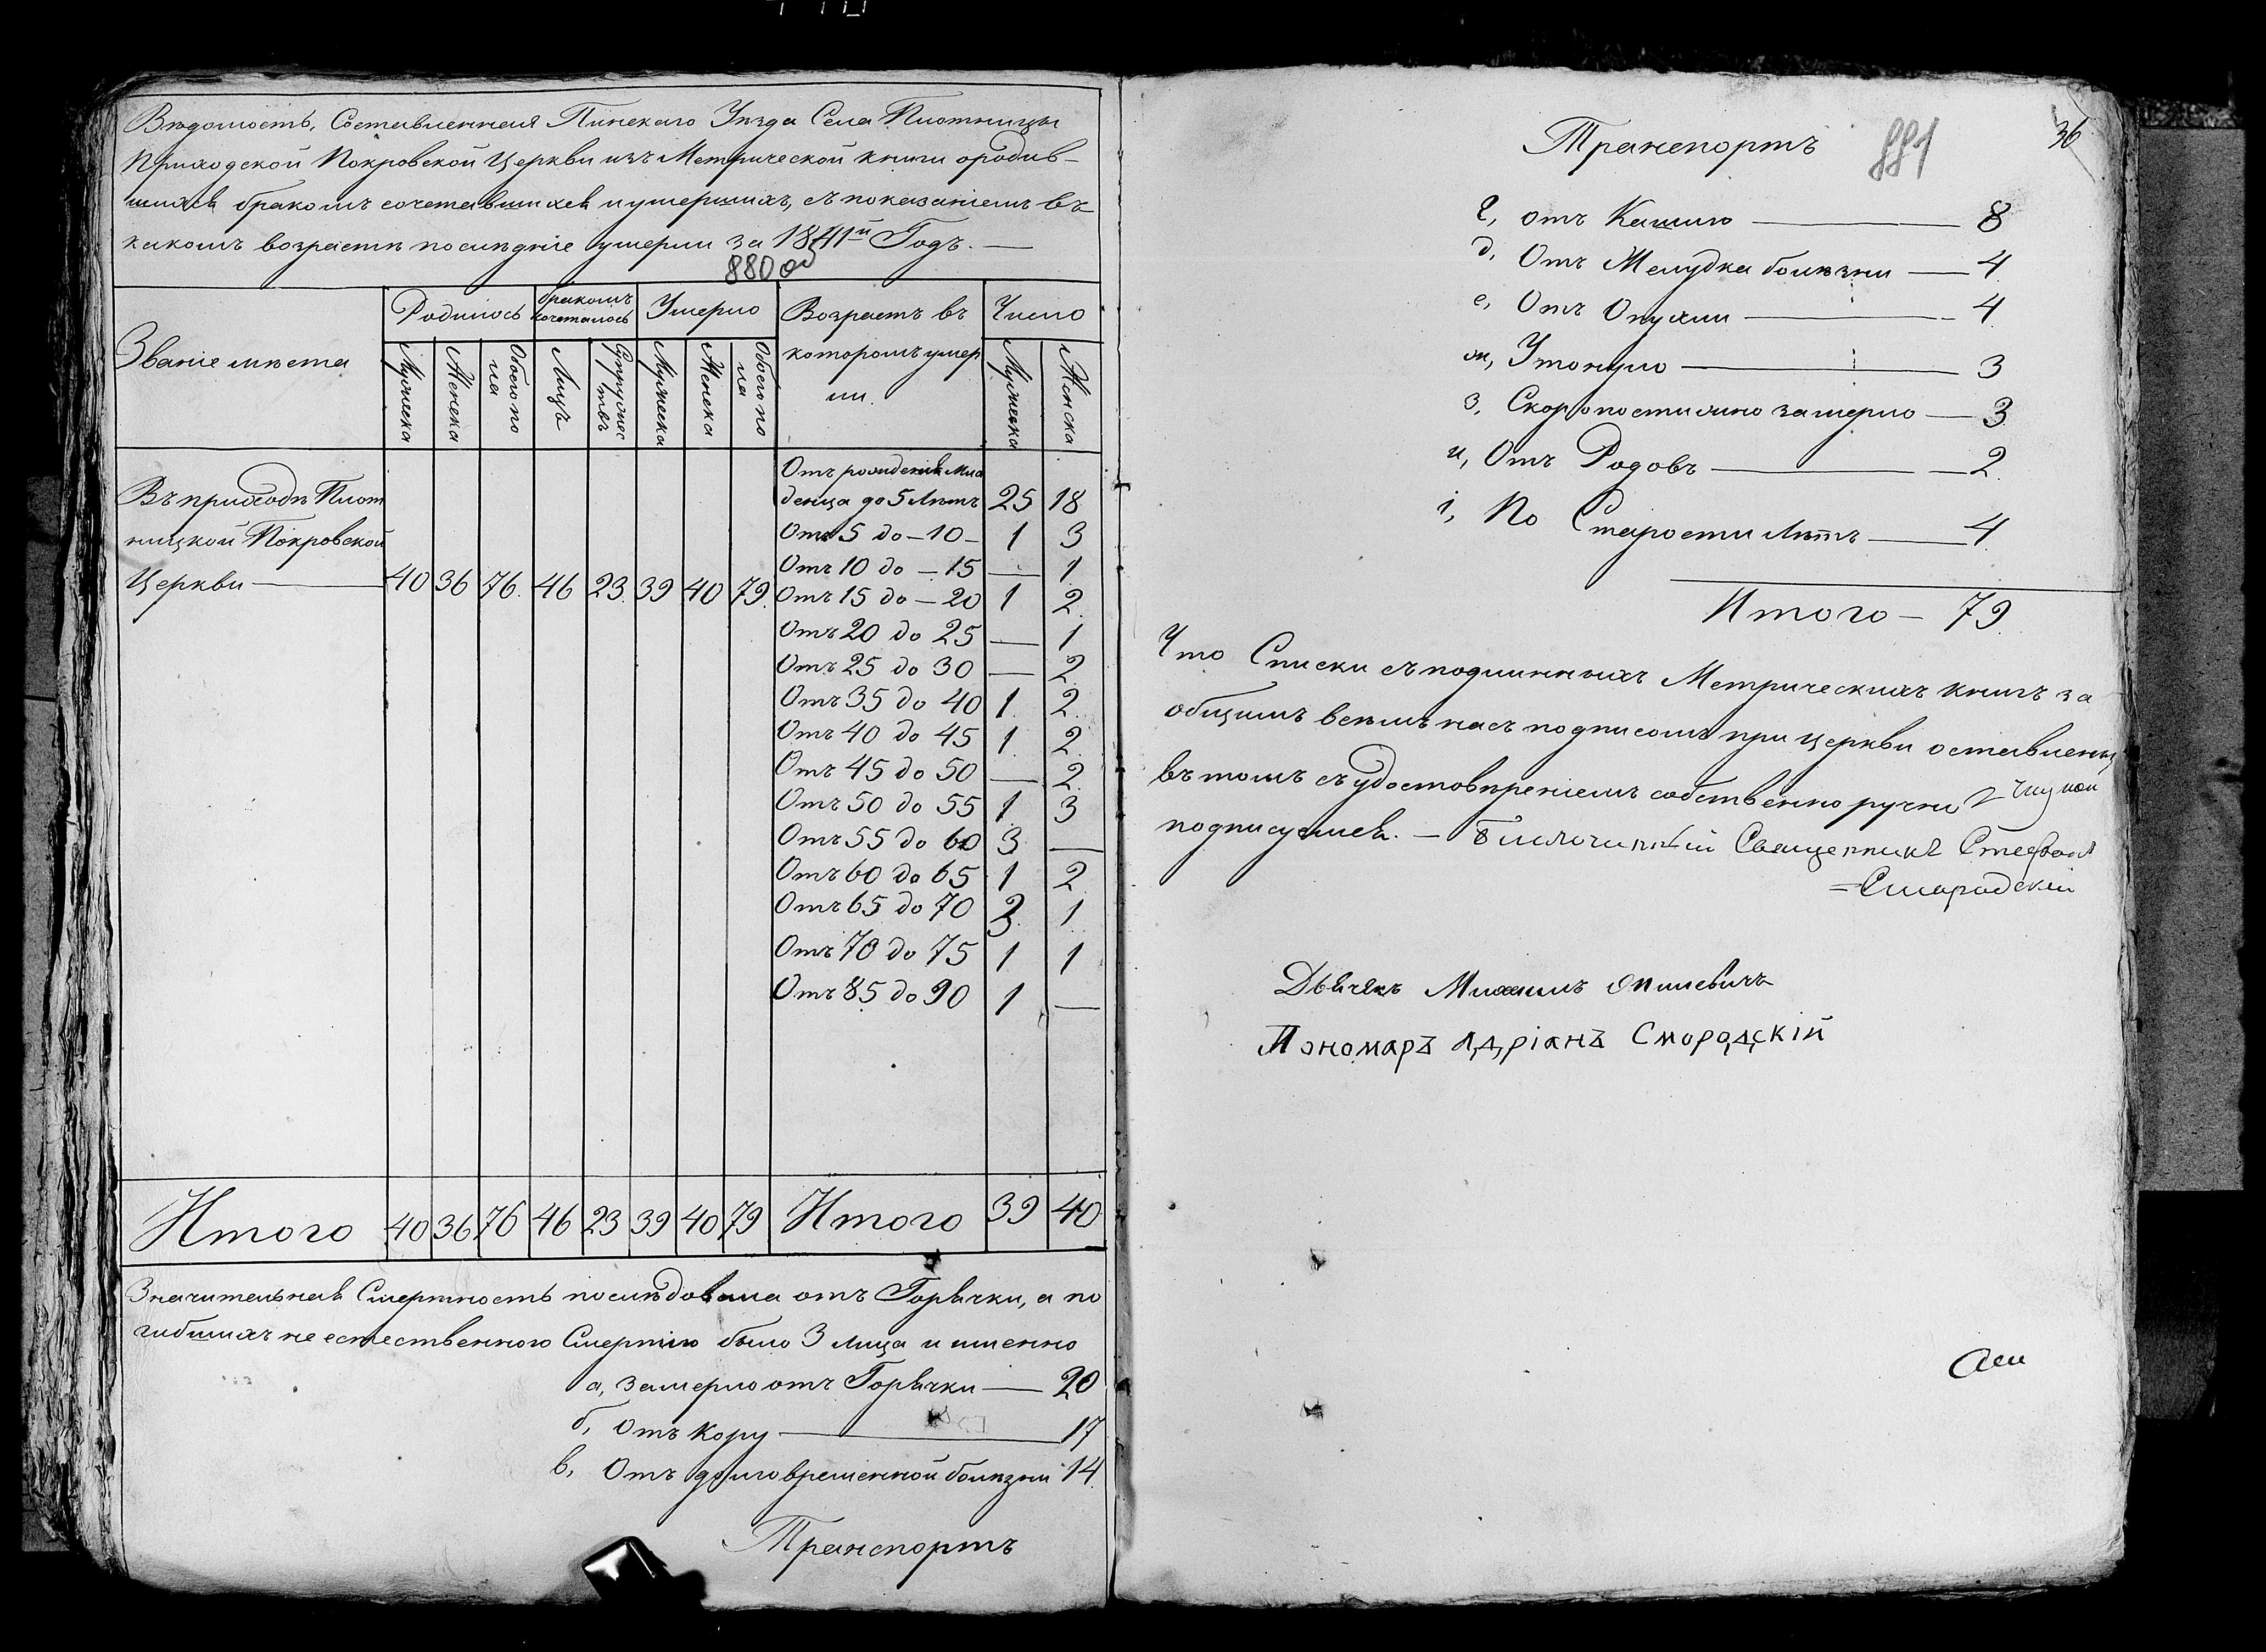 Вѣдомость, Составленная Пинскаго Уѣзда Села Плотницы
Приходской Покровской Церкви изъ Метрической книги о родив-
шихся бракомъ сочетавшихся и умершихъ, съ показаніемъ въ
какомъ возрастѣ послѣдніе умерли за 1841й Годъ. —
880 об
Званіе мѣста
Родилось
бракомъ сочеталось
Умерло
Возрастъ въ
которомъ умер
ли.
Число
Мужеска
Женска
Обоего по
ла
Лицъ
Супружес
твъ
Мужеска
Женска
Обоего по
ла
Мужеска
Женска
Въ приходѣ Плот
ницкой Покровской
Церкви — 40 36 76. 46 23. 39 40 79.
Отъ рожденія Мла
денца до 5 Лѣтъ 25 18
Отъ 5 до — 10 — 1 3
Отъ 10 до — 15 — 1
Отъ 15 до — 20 1 2.
Отъ 20 до 25 — 1
Отъ 25 до 30 — 2.
Отъ 35 до 40 1. 2.
Отъ 40 до 45 1. 2.
Отъ 45 до 50 — 2.
Отъ 50 до 55 1 3
Отъ 55 до 60 3 —
Отъ 60 до 65 1 2
Отъ 65 до 70 3. 1.
Отъ 70 до 75 1 1
Отъ 85 до 90 1 —
Итого 40 36 76 46 23 39 40 79 Итого 39 40
Значительная Смертность послѣдовала отъ Горячки, а по
гибшихъ не естественною Смертію было 3 лица и именно
а, замерло отъ Горячки — 20
б, Отъ Кору — 17
в, Отъ долговременной болѣзни 14
Транспортъ
Транспортъ
881
36
г, отъ Кашлю — 8
д, Отъ Желудка болѣзни — 4
е, Отъ Опухли — 4
ж, Утонуло — 3
з, Скоропостижно замерло — 3
и, Отъ Родовъ — 2.
і, По Старости Лѣтъ — 4.
Итого — 79.
Что Списки съ подлинныхъ Метрическихъ книгъ за
общимъ всѣмъ насъ подписомъ при церкви оставлены
въ томъ съ удостовѣреніемъ собственно ручно
подписуемся. — Благочинный Священникъ Стефанъ
= Смородскій
Дьячекъ Михаилъ
Пономаръ Адріанъ Смородскій